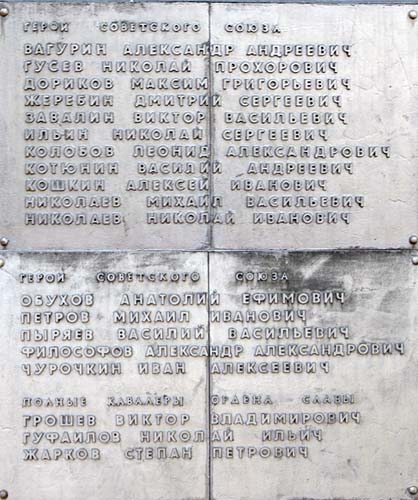 ГЕРОИ СОВЕТСКОГО СОЮЗА
ВАГУРИН АЛЕКСАНДР АНДРЕЕВИЧ
ГУСЕВ НИКОЛАЙ ПРОХОРОВИЧ
ДОРИКОВ МАКСИМ ГРИГОРЬЕВИЧ
ЖЕРЕБИН ДМИТРИЙ СЕРГЕЕВИЧ
ЗАВАЛИН ВИКТОР ВАСИЛЬЕВИЧ
ИЛЬИН НИКОЛАЙ СЕРГЕЕВИЧ
КОЛОБОВ ЛЕОНИД АЛЕКСАНДРОВИЧ
КОТЮНИН ВАСИЛИЙ АНДРЕЕВИЧ
КОШКИН АЛЕКСЕЙ ИВАНОВИЧ
НИКОЛАЕВ МИХАИЛ ВАСИЛЬЕВИЧ
НИКОЛАЕВ НИКОЛАЙ ИВАНОВИЧ
ГЕРОИ СОВЕТСКОГО СОЮЗА
ОБУХОВ АНАТОЛИЙ ЕФИМОВИЧ
ПЕТРОВ МИХАИЛ ИВАНОВИЧ
ПЫРЯЕВ ВАСИЛИЙ ВАСИЛЬЕВИЧ
ФИЛОСОФОВ АЛЕКСАНДР АЛЕКСАНДРОВИЧ
ЧУРОЧКИН ИВАН АЛЕКСЕЕВИЧ
ПОЛНЫЕ КАВАЛЕРЫ ОРДЕНА СЛАВЫ
ГРОШЕВ ВИКТОР ВЛАДИМИРОВИЧ
ГУФАИЛОВ НИКОЛАЙ ИЛЬИЧ
ЖАРКОВ СТЕПАН ПЕТРОВИЧ